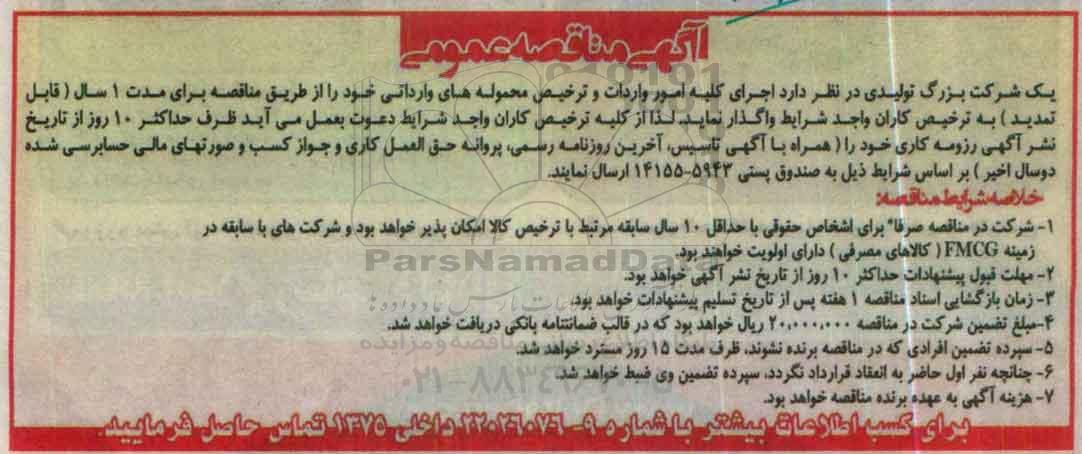 آگهی مناقصه عمومی
یک شرکت بزرگ تولیدی در نظر دارد اجرای کلیه امور واردات و ترخیص محموله های وارداتی خود را از طریق مناقصه برای مدت ۱ سال ( قابل
تمدید ) به ترخیص کاران واجد شرایط واگذار نماید. لذا از کلیه ترخیص کاران واجد شرایط دعوت بعمل می آید ظرف حداکثر ۱۰ روز از تاریخ
نشر آگهی رزومه کاری خود را ( همراه با آگهی تاسیس، آخرین روزنامه رسمی، پروانه حق العمل کاری و جواز کسب و صورتهای مالی حسابرسی شده
دوسال اخیر ) بر اساس شرایط ذیل به صندوق پستی ۵۹۴۳-۱۴۱۵۵ ارسال نمایند.
خلاصه شرایط مناقصه:
۱- شرکت در مناقصه صرفا" برای اشخاص حقوقی با حداقل ۱۰ سال سابقه مرتبط با ترخیص کالا امکان پذیر خواهد بود و شرکت های با سابقه در
زمینه FMCG ( کالاهای مصرفی ) دارای اولویت خواهند بود.
۲- مهلت قبول پیشنهادات حداکثر ۱۰ روز از تاریخ نشر آگهی خواهد بود.
ParsNamadData
۳- زمان بازگشایی اسناد مناقصه ۱ هفته پس از تاریخ تسلیم پیشنهادات خواهد بود.
۴-مبلغ تضمین شرکت در مناقصه ۲۰،۰۰۰،۰۰۰ ریال خواهد بود که در قالب ضمانتنامه بانکی دریافت خواهد شد.
۵- سپرده تضمین افرادی که در مناقصه برنده نشوند، ظرف مدت ۱۵ روز مسترد خواهد شد.
۶- چنانچه نفر اول حاضر به انعقاد قرارداد نگردد، سپرده تضمین وی ضبط خواهد شد.
۷- هزینه آگهی به عهده برنده مناقصه خواهد بود.
برای کسب اطلاعات بیشتر با شماره ۹-۲۲۰۲۶۰۷۶ داخلی ۱۳۷۵ تماس حاصل فرمایید.